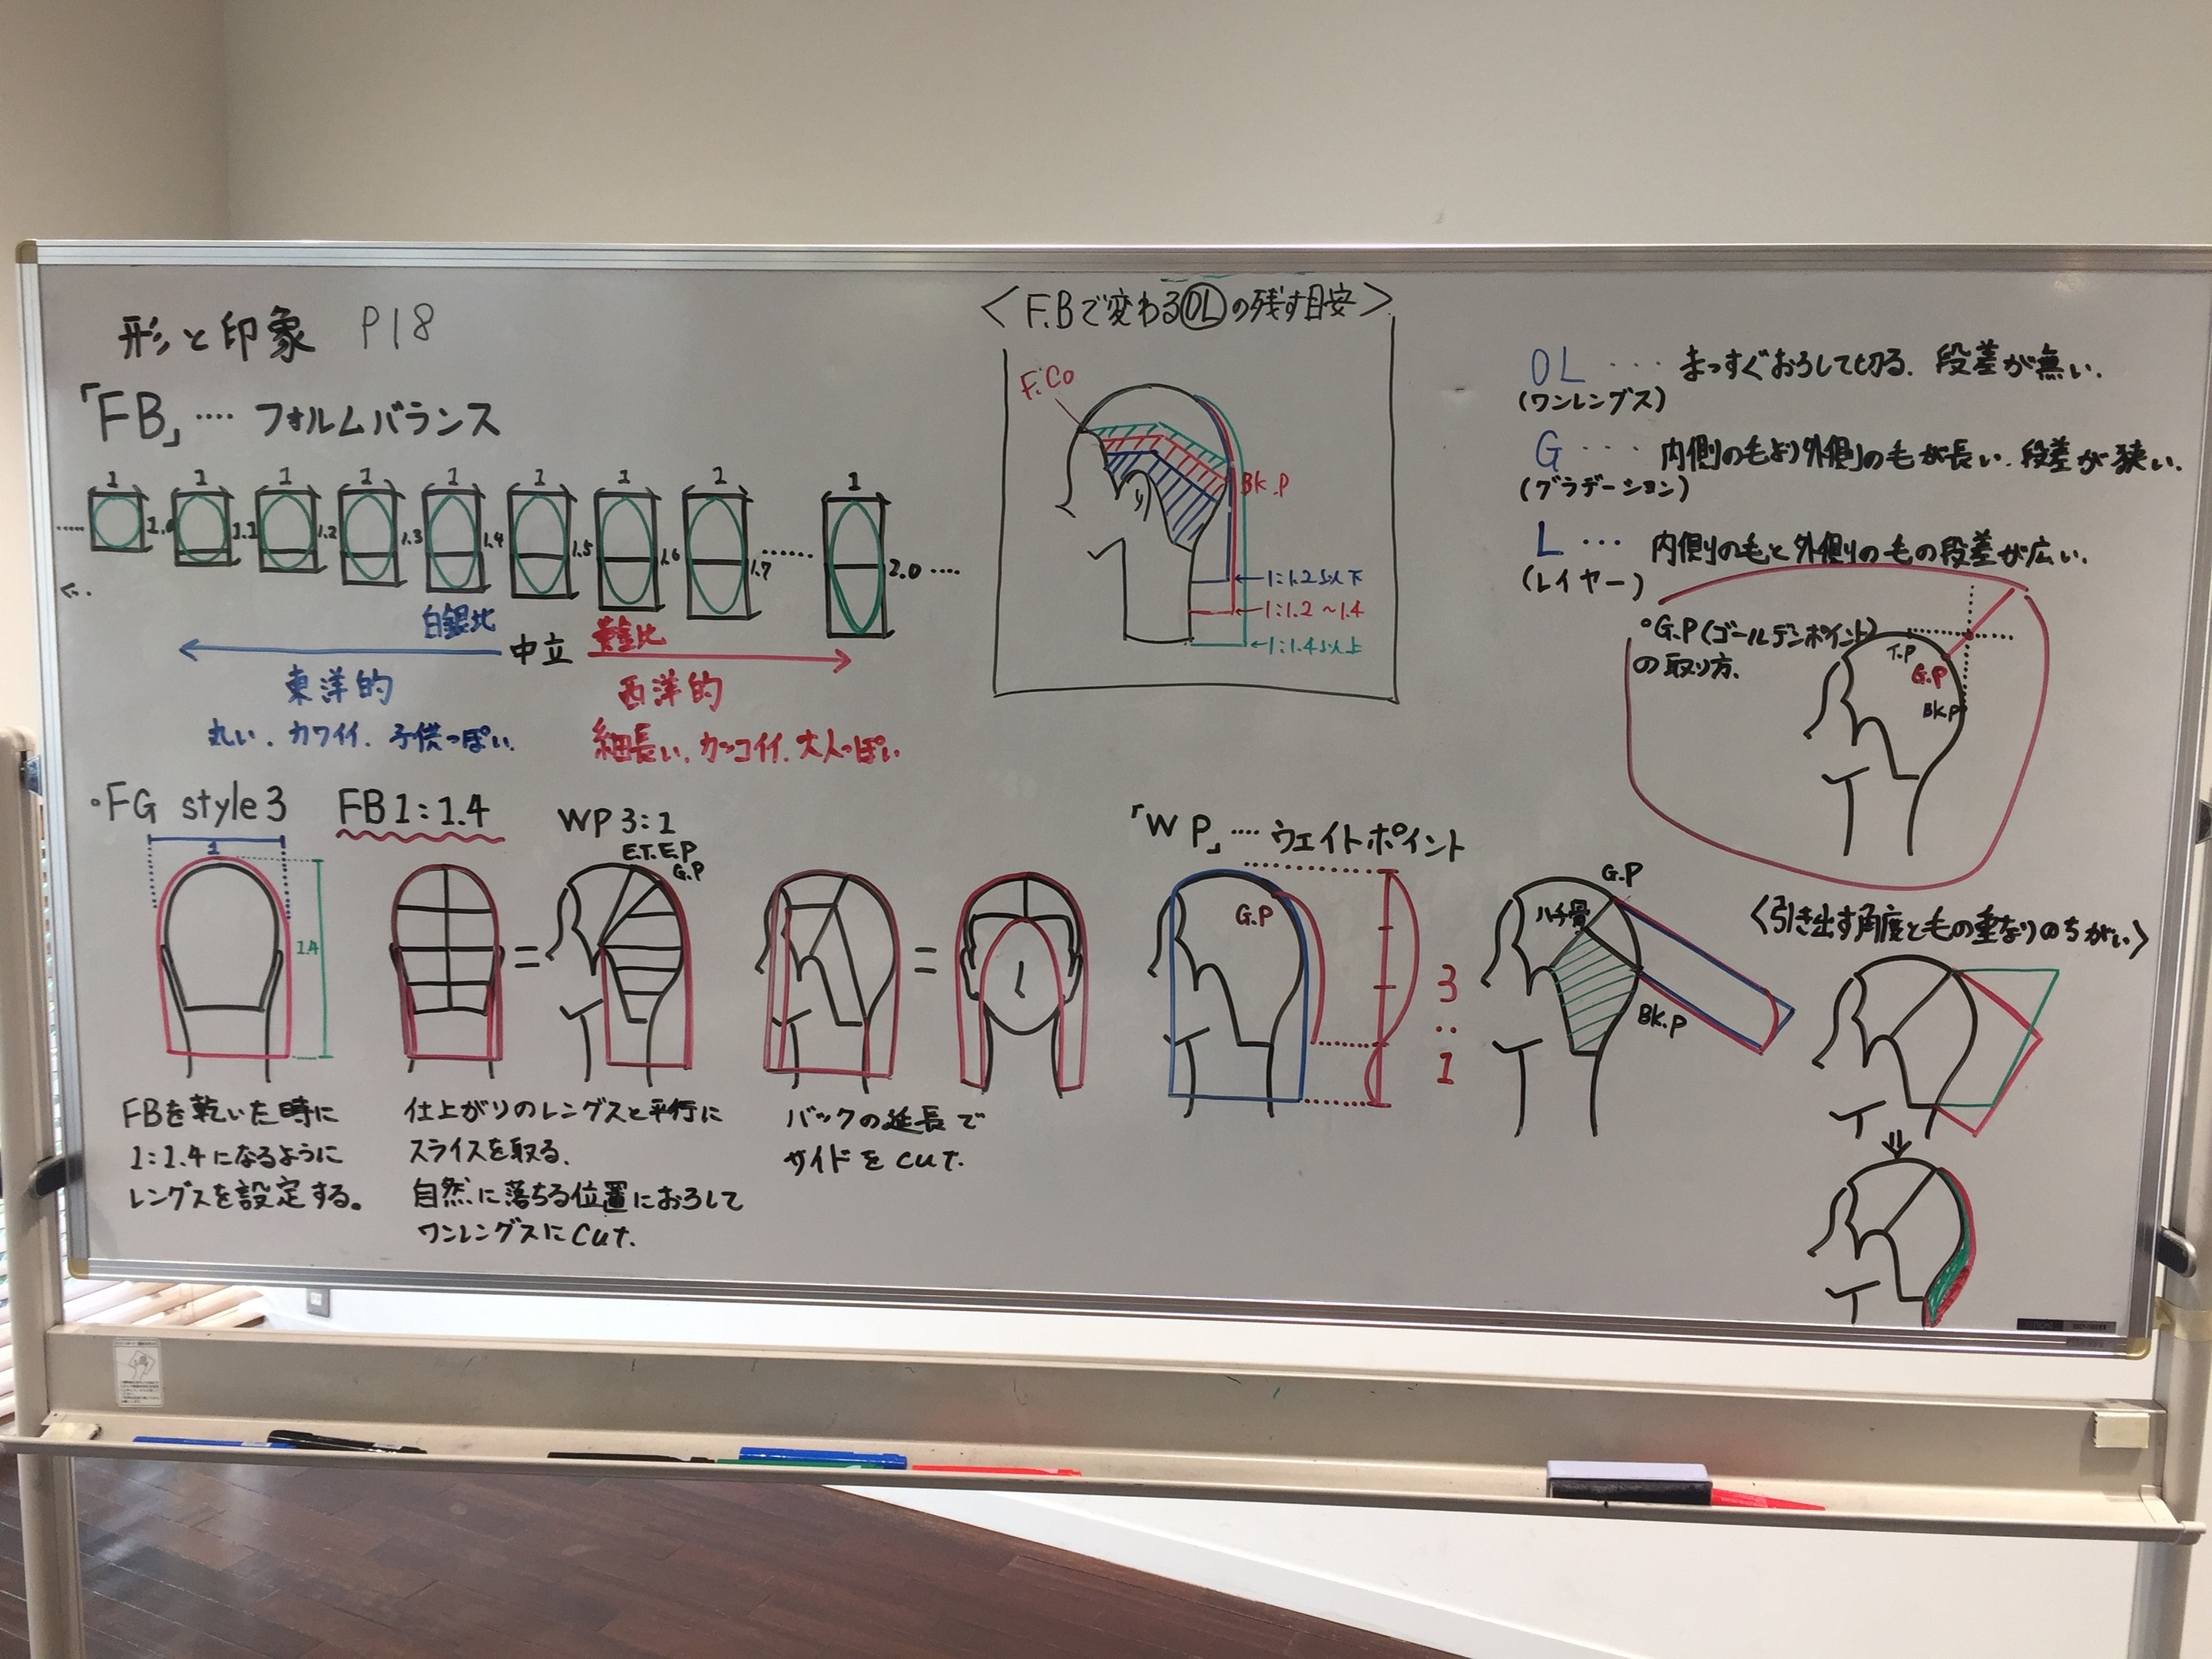 形と印象 P18
「FB」‥‥ フォルムバランス
1 1 1 1 1 1 1 1 1
1.1 1.2 1.3 1.4 1.5 1.6 1.7 ‥‥‥ 2.0 ‥‥
白銀比 中立 黄金比
東洋的 西洋的
丸い、カワイイ、子供っぽい、
細長い、カッコイイ、大人っぽい
<F.Bで変わるOLの残す目安>
F.Co
Bk.P
1:1.2以下
1:1.2~1.4
1:1.4以上
OL ‥‥ まっすぐおろして切る、段差が無い、
(ワンレングス)
G ‥‥ 内側の毛より外側の毛が長い、段差が狭い、
(グラデーション)
L ‥‥ 内側の毛と外側の毛の段差が広い、
(レイヤー)
・G.P(ゴールデンポイント)
の取り方、
T.P
G.P
BK.P
・FG style3 FB1:1.4 WP3:1
1
1.4
E.T.E.P
G.P
= =
FBを乾いた時に
1:1.4になるように
レングスを設定する。
仕上がりのレングスと平行に
スライスを取る、
自然に落ちる位置におろして
ワンレングスにcut.
バックの延長で
サイドをcut.
「WP」‥‥ ウェイトポイント
G.P
3
:
1
G.P
ハチ骨
BK.P
<引き出す角度と毛の重なりのちがい>